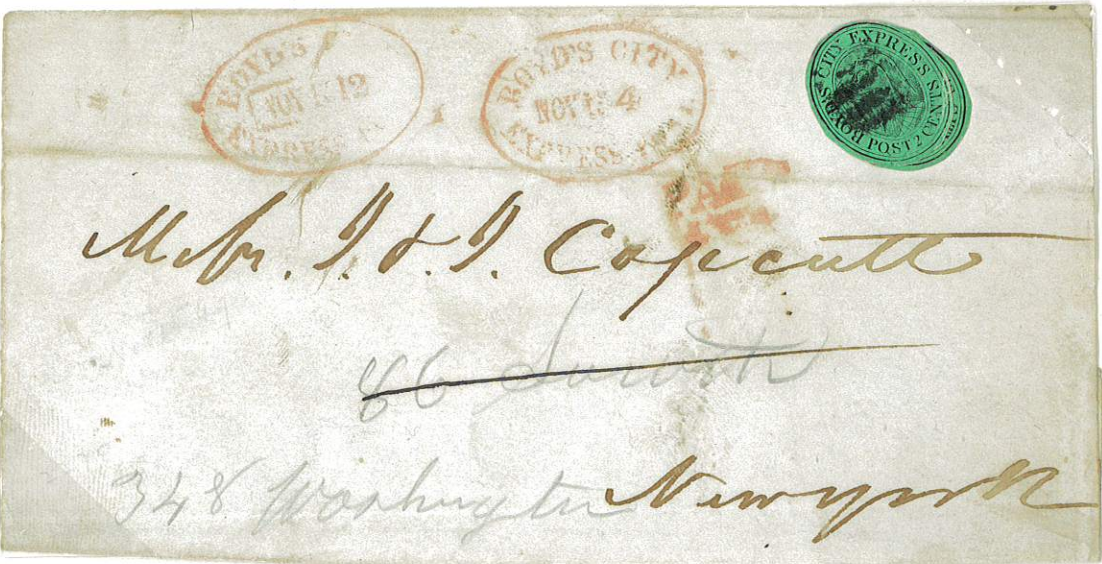 BOYD'S
NOV 12
EXPRESS
BOYD'S CITY
NOV 4
EXPRESS POST
BOYD'S CITY EXPRESS POST 2 CENTS
Messrs. J. & J. Copcutt
86
348 Washington New york